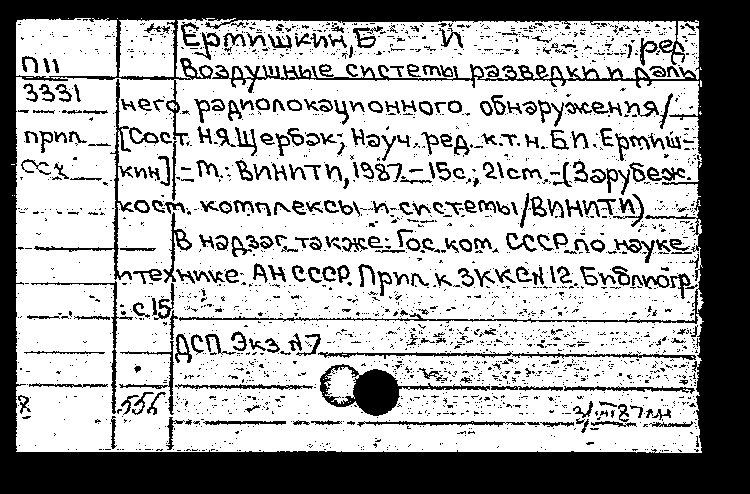 Ермишкин, Б И , ред
П11
Воздушные системы разведки и даль
3331
него радиолокационного обнаружения/
прил [Сост. Н.Я Щербак; Науч. ред. к.т.н. Б.И. Ермиш-
ССХ кин] - М.: ВИНИТИ, 1987. - 15с.; 21cm. - (Зарубеж.
косм. комплексы и системы/ВИНИТИ)
В надзаг. также: Гос. ком. СССР по науке
и технике. АН СССР. Прил. к ЗККС N12. Библиогр
: с 15
ДСП Экз. N7
8 556 3/VIII 87